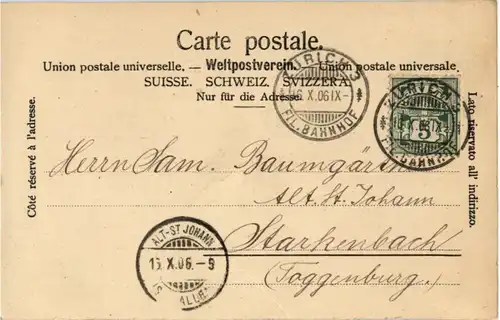 Carte postale.
Union postale universelle. — Weltpostverein. — Union postale universale.
SUISSE. SCHWEIZ. SVIZZERA.
Nur für die Adresse.
Côté réservé à l'adresse.
Lato riservato all' indirizzo.
ZÜRICH 3
X.06 IX-
FIL. BAHNHOF
ZÜRICH 3
5
FIL. BAHNH.
Herrn Sam. Baumgärtner
Alt. St. Johann
Starkenbach
(Toggenburg.)
ALT-ST JOHANN
X.06.-9